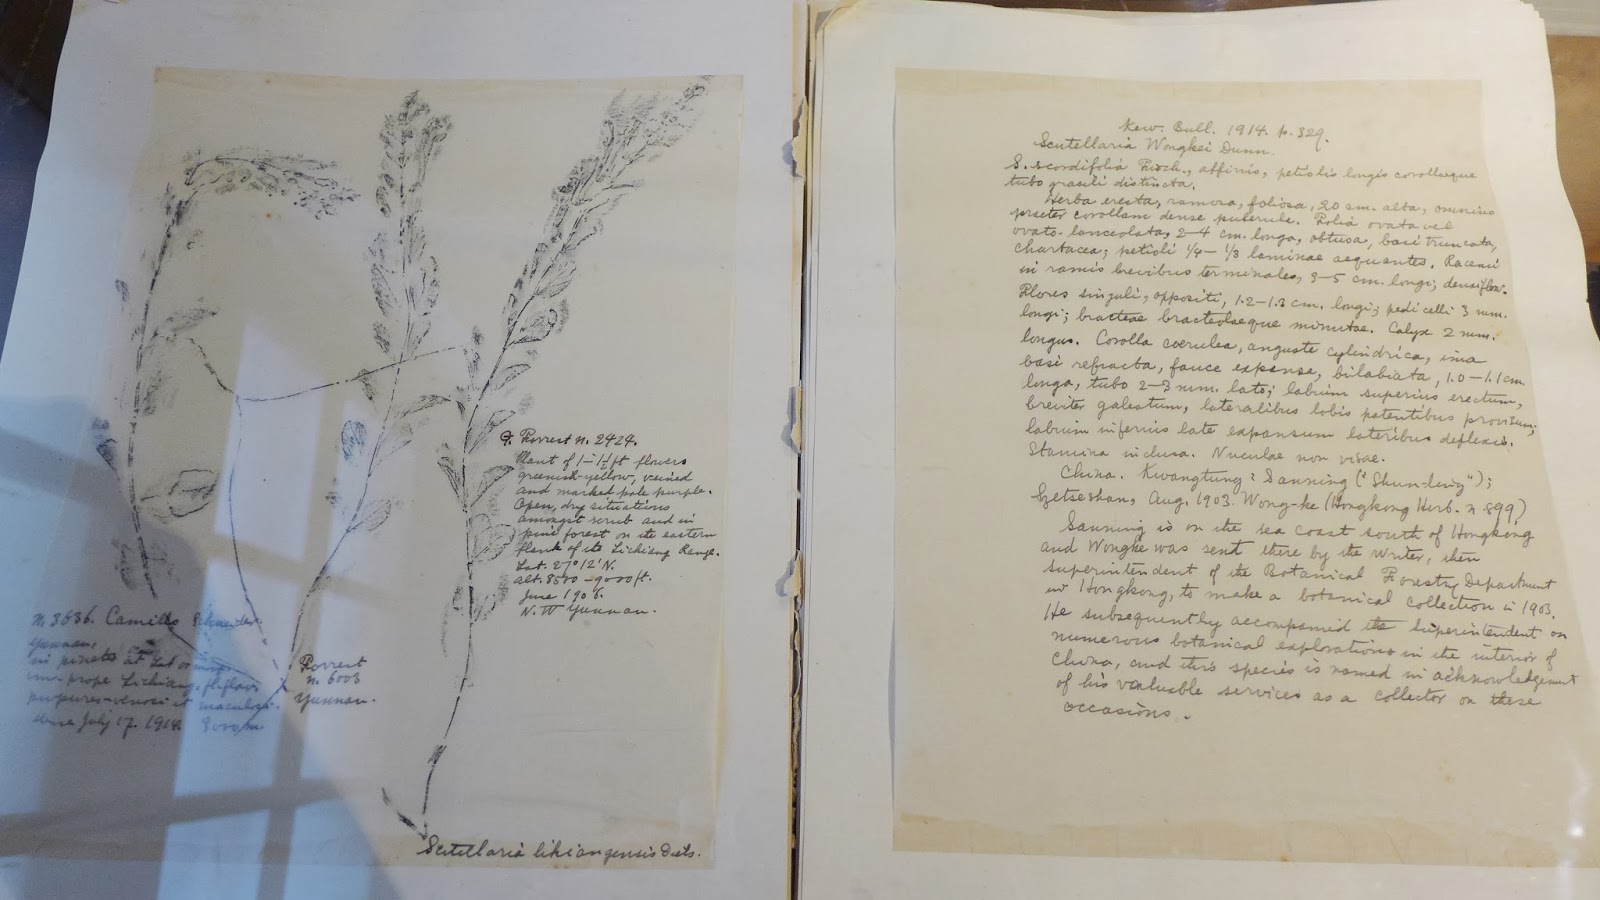 G. Forrest n. 2424.
Plant of 1–1½ ft flowers
greenish-yellow, veined
and marked pale purple.
Open, dry situations
amongst scrub and in
pine forest on the eastern
flank of the Lichiang Range.
Lat. 27° 12' N.
alt. 8500–9000 ft.
June 1906.
N. W Yunnan.
n. 3636. Camillo Schneider.
Yunnan,
in pinetis at
prope Lichiang. fl. flavi
purpureo-venosi et maculosi.
July 17. 1914. 3000 m
Forrest
n. 6003
Yunnan.
Scutellaria likiangensis Diels.
Kew. Bull. 1914. p. 329.
Scutellaria Wongkei Dunn.
S. scordifolia Fisch., affinis, petiolis longis corollaeque
tubo gracili distincta.
Herba erecta, ramosa, foliosa, 20 cm. alta, omnino
praeter corollam dense puberula. Folia ovata vel
ovato-lanceolata, 2–4 cm. longa, obtusa, basi truncata,
chartacea; petioli ¼–⅓ laminae aequantes. Racemi
in ramis brevibus terminales, 3–5 cm. longi; densiflor.
Flores singuli, oppositi, 1.2–1.3 cm. longi; pedicelli 3 mm.
longi; bracteae bracteolaeque minutae. Calyx 2 mm.
longus. Corolla coerulea, anguste cylindrica, ima
basi refracta, fauce expansa, bilabiata, 1.0–1.1 cm.
longa, tubo 2–3 mm. lato; labium superius erectum,
breviter galeatum, lateralibus lobis patentibus provisum;
labium inferius late expansum lateribus deflexis.
Stamina inclusa. Nuculae non visae.
China. Kwangtung: Sanning ("Shun-ling");
Getseshan, Aug. 1903. Wong-ke (Hongkong Herb. n 899)
Sanning is on the sea coast south of Hongkong
and Wongke was sent there by the writer, then
superintendent of the Botanical Forestry Department
in Hongkong, to make a botanical collection in 1903.
He subsequently accompanied the superintendent on
numerous botanical explorations in the interior of
China, and this species is named in acknowledgement
of his valuable services as a collector on these
occasions.